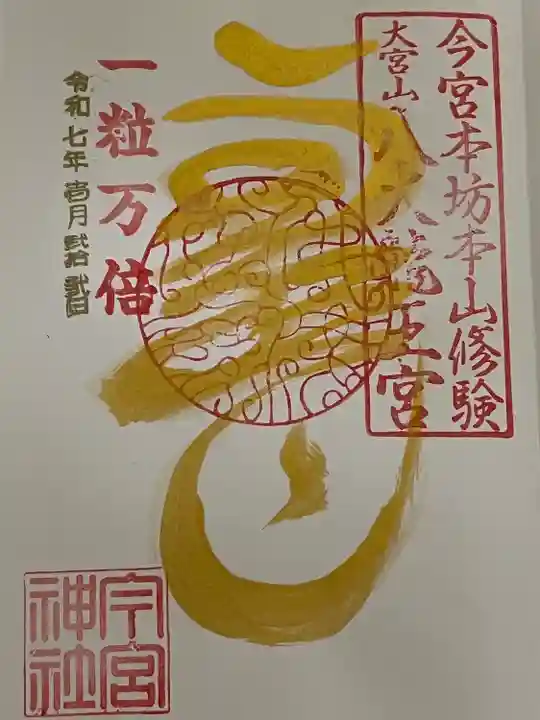 今宮本坊本山修験
大宮山 八大龍王宮
一粒万倍
令和七年壱月弐拾弐日
今宮
神社